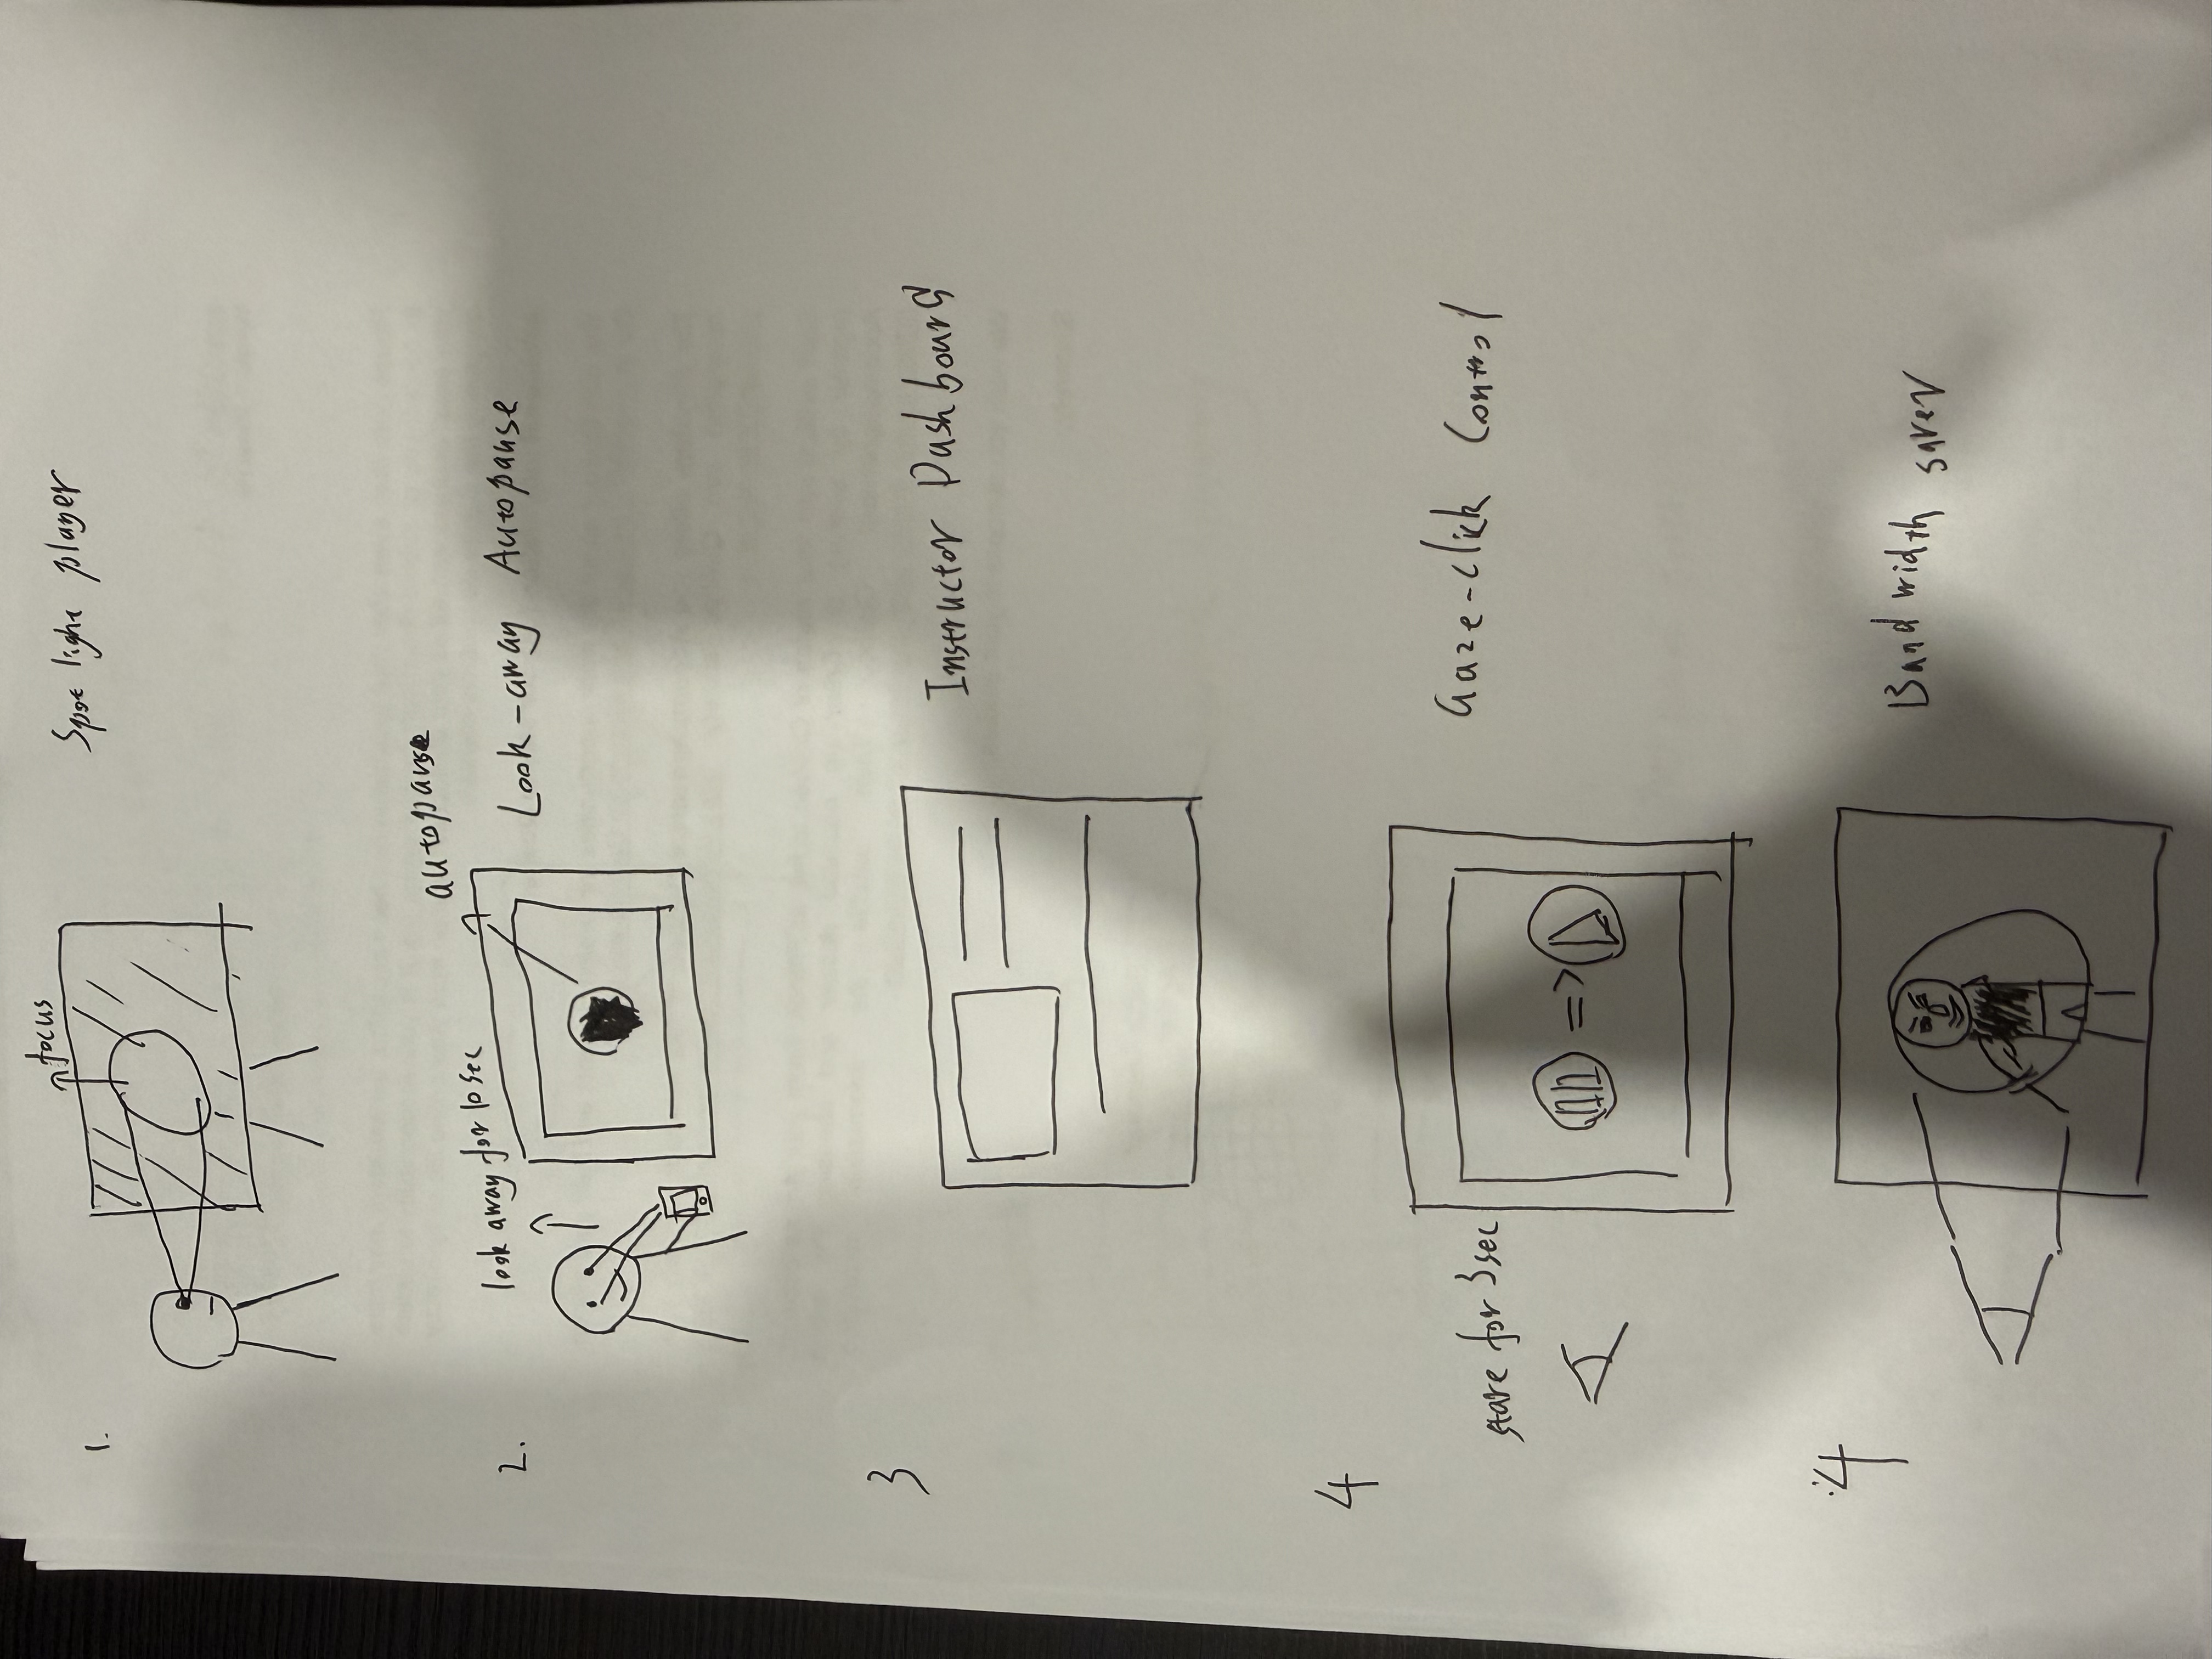 1.
focus
Spotlight player
2.
look away for 10sec
autopause
Look-away Autopause
3
Instructor Dashboard
4
stare for 3sec
Gaze-click Control
4
Bandwidth saver